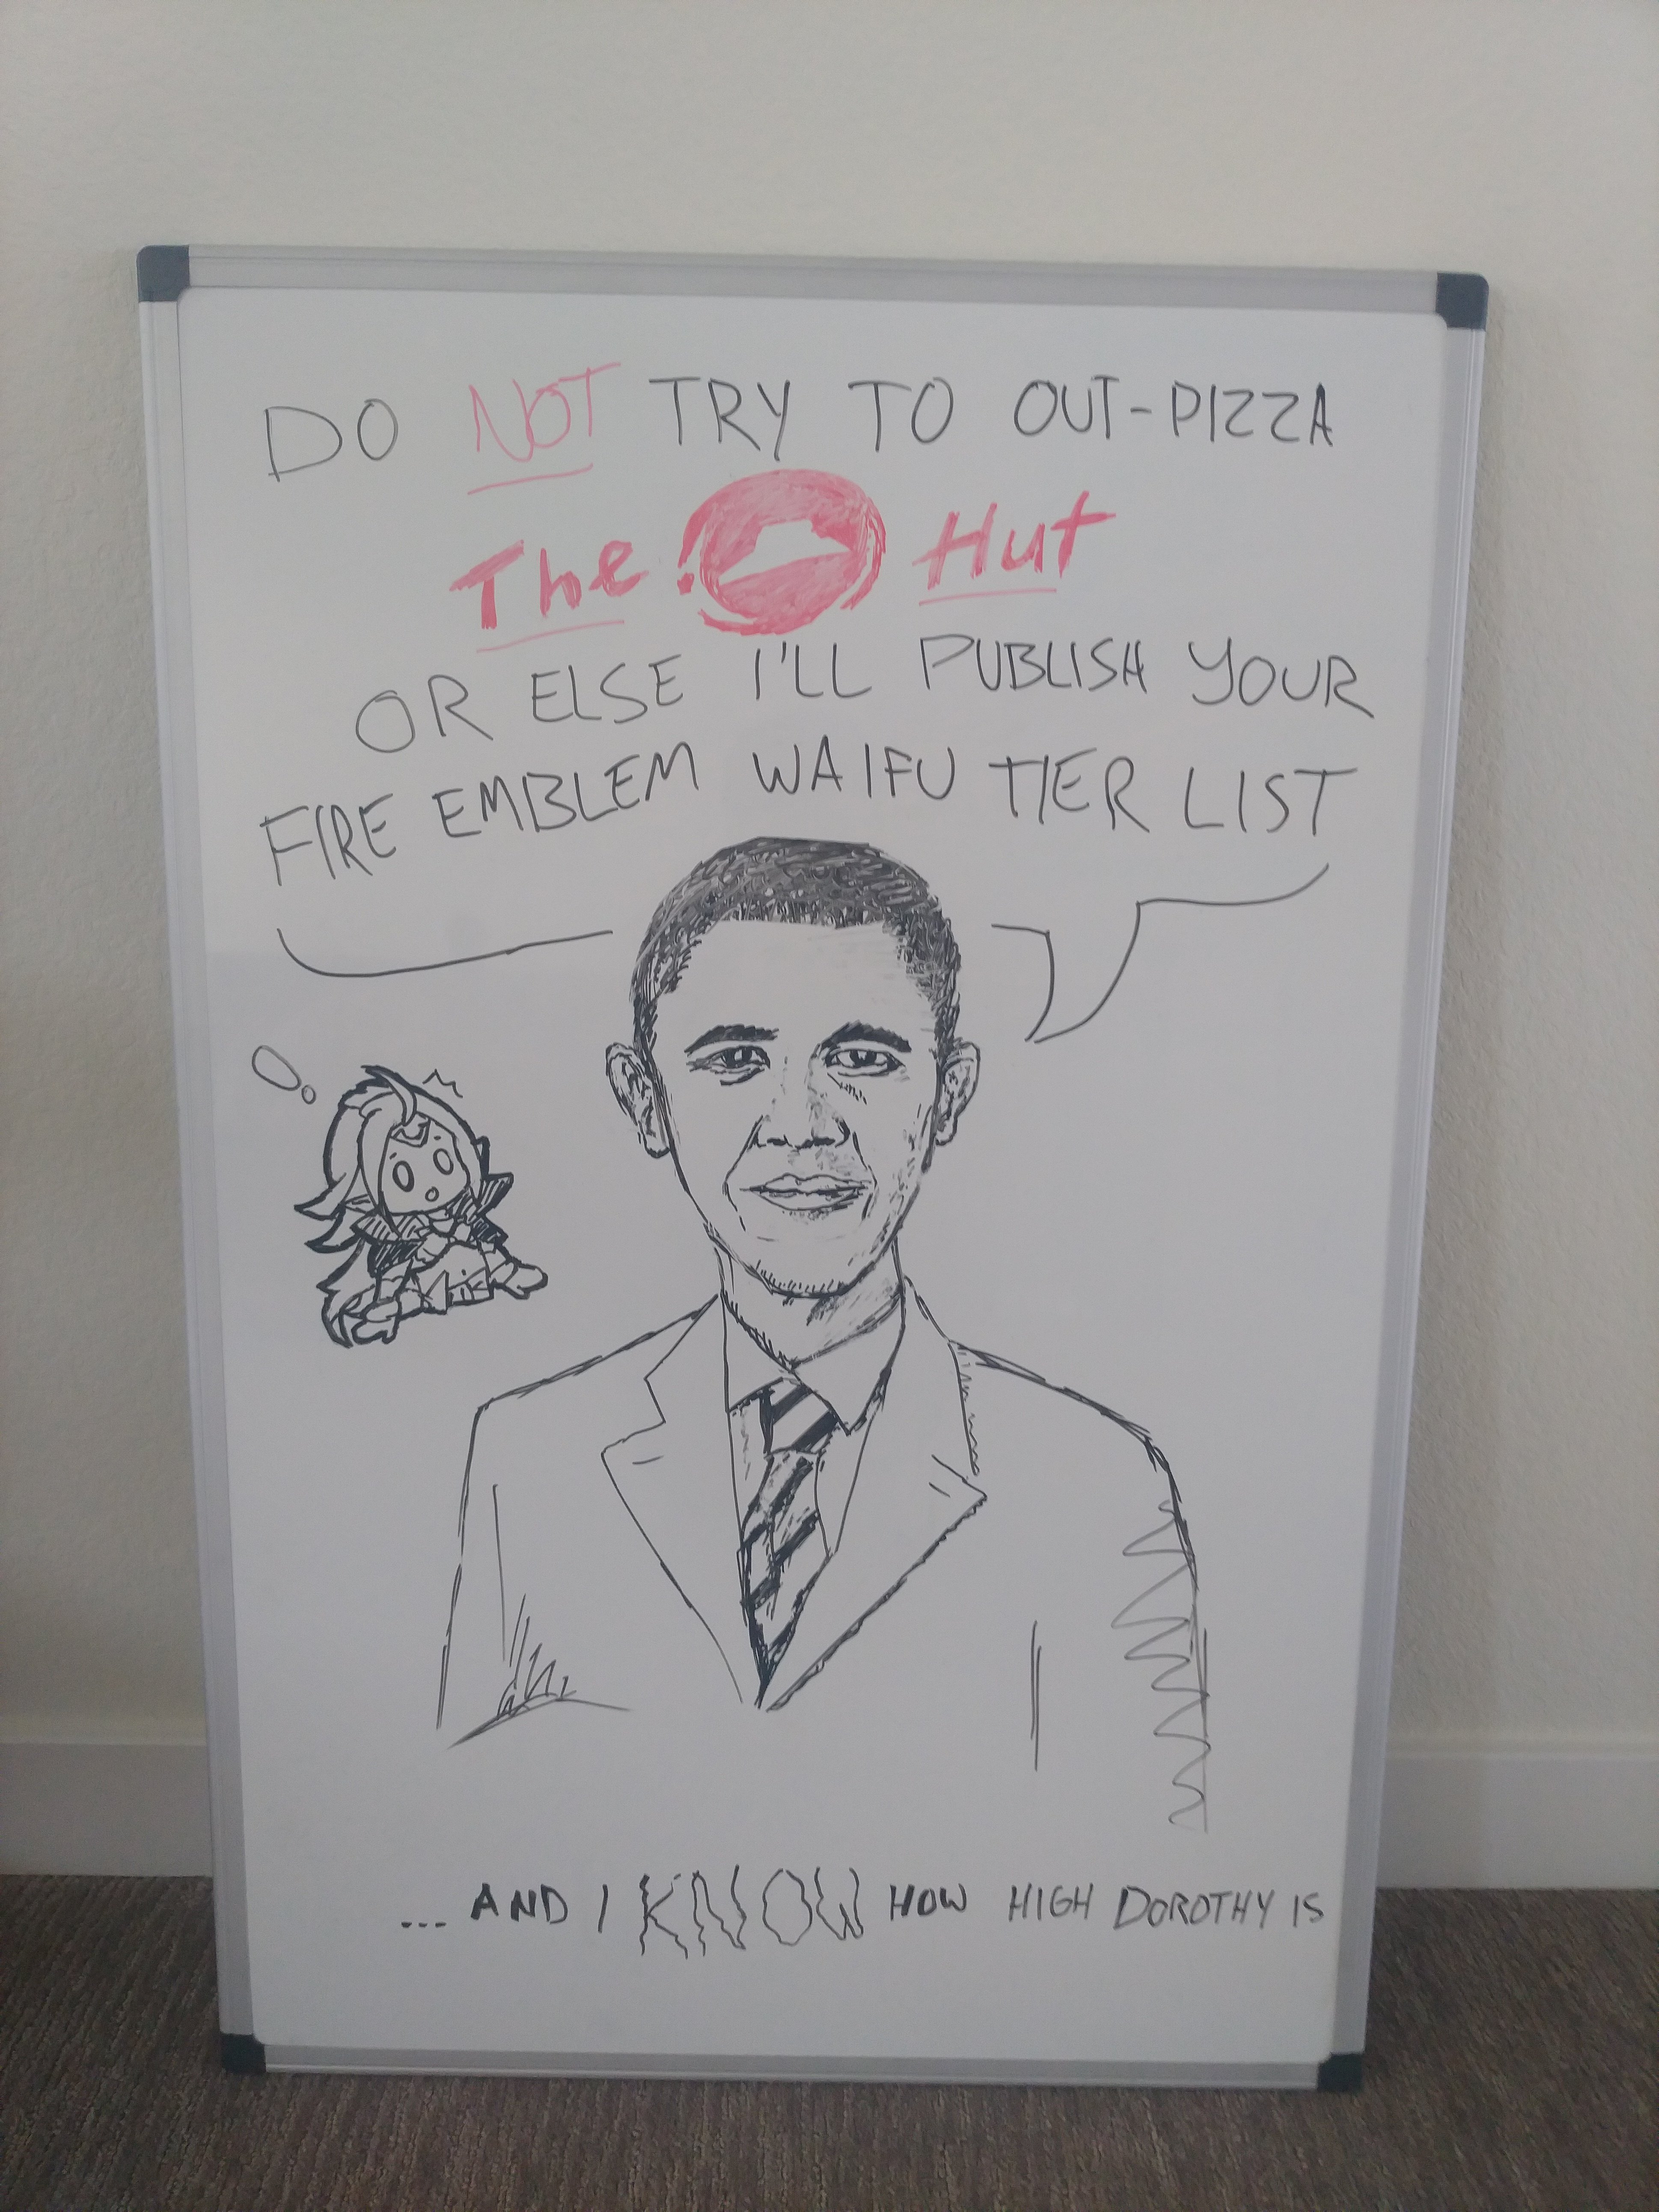 DO NOT TRY TO OUT-PIZZA
The Hut
OR ELSE I'LL PUBLISH YOUR
FIRE EMBLEM WAIFU TIER LIST
... AND I KNOW HOW HIGH DOROTHY IS